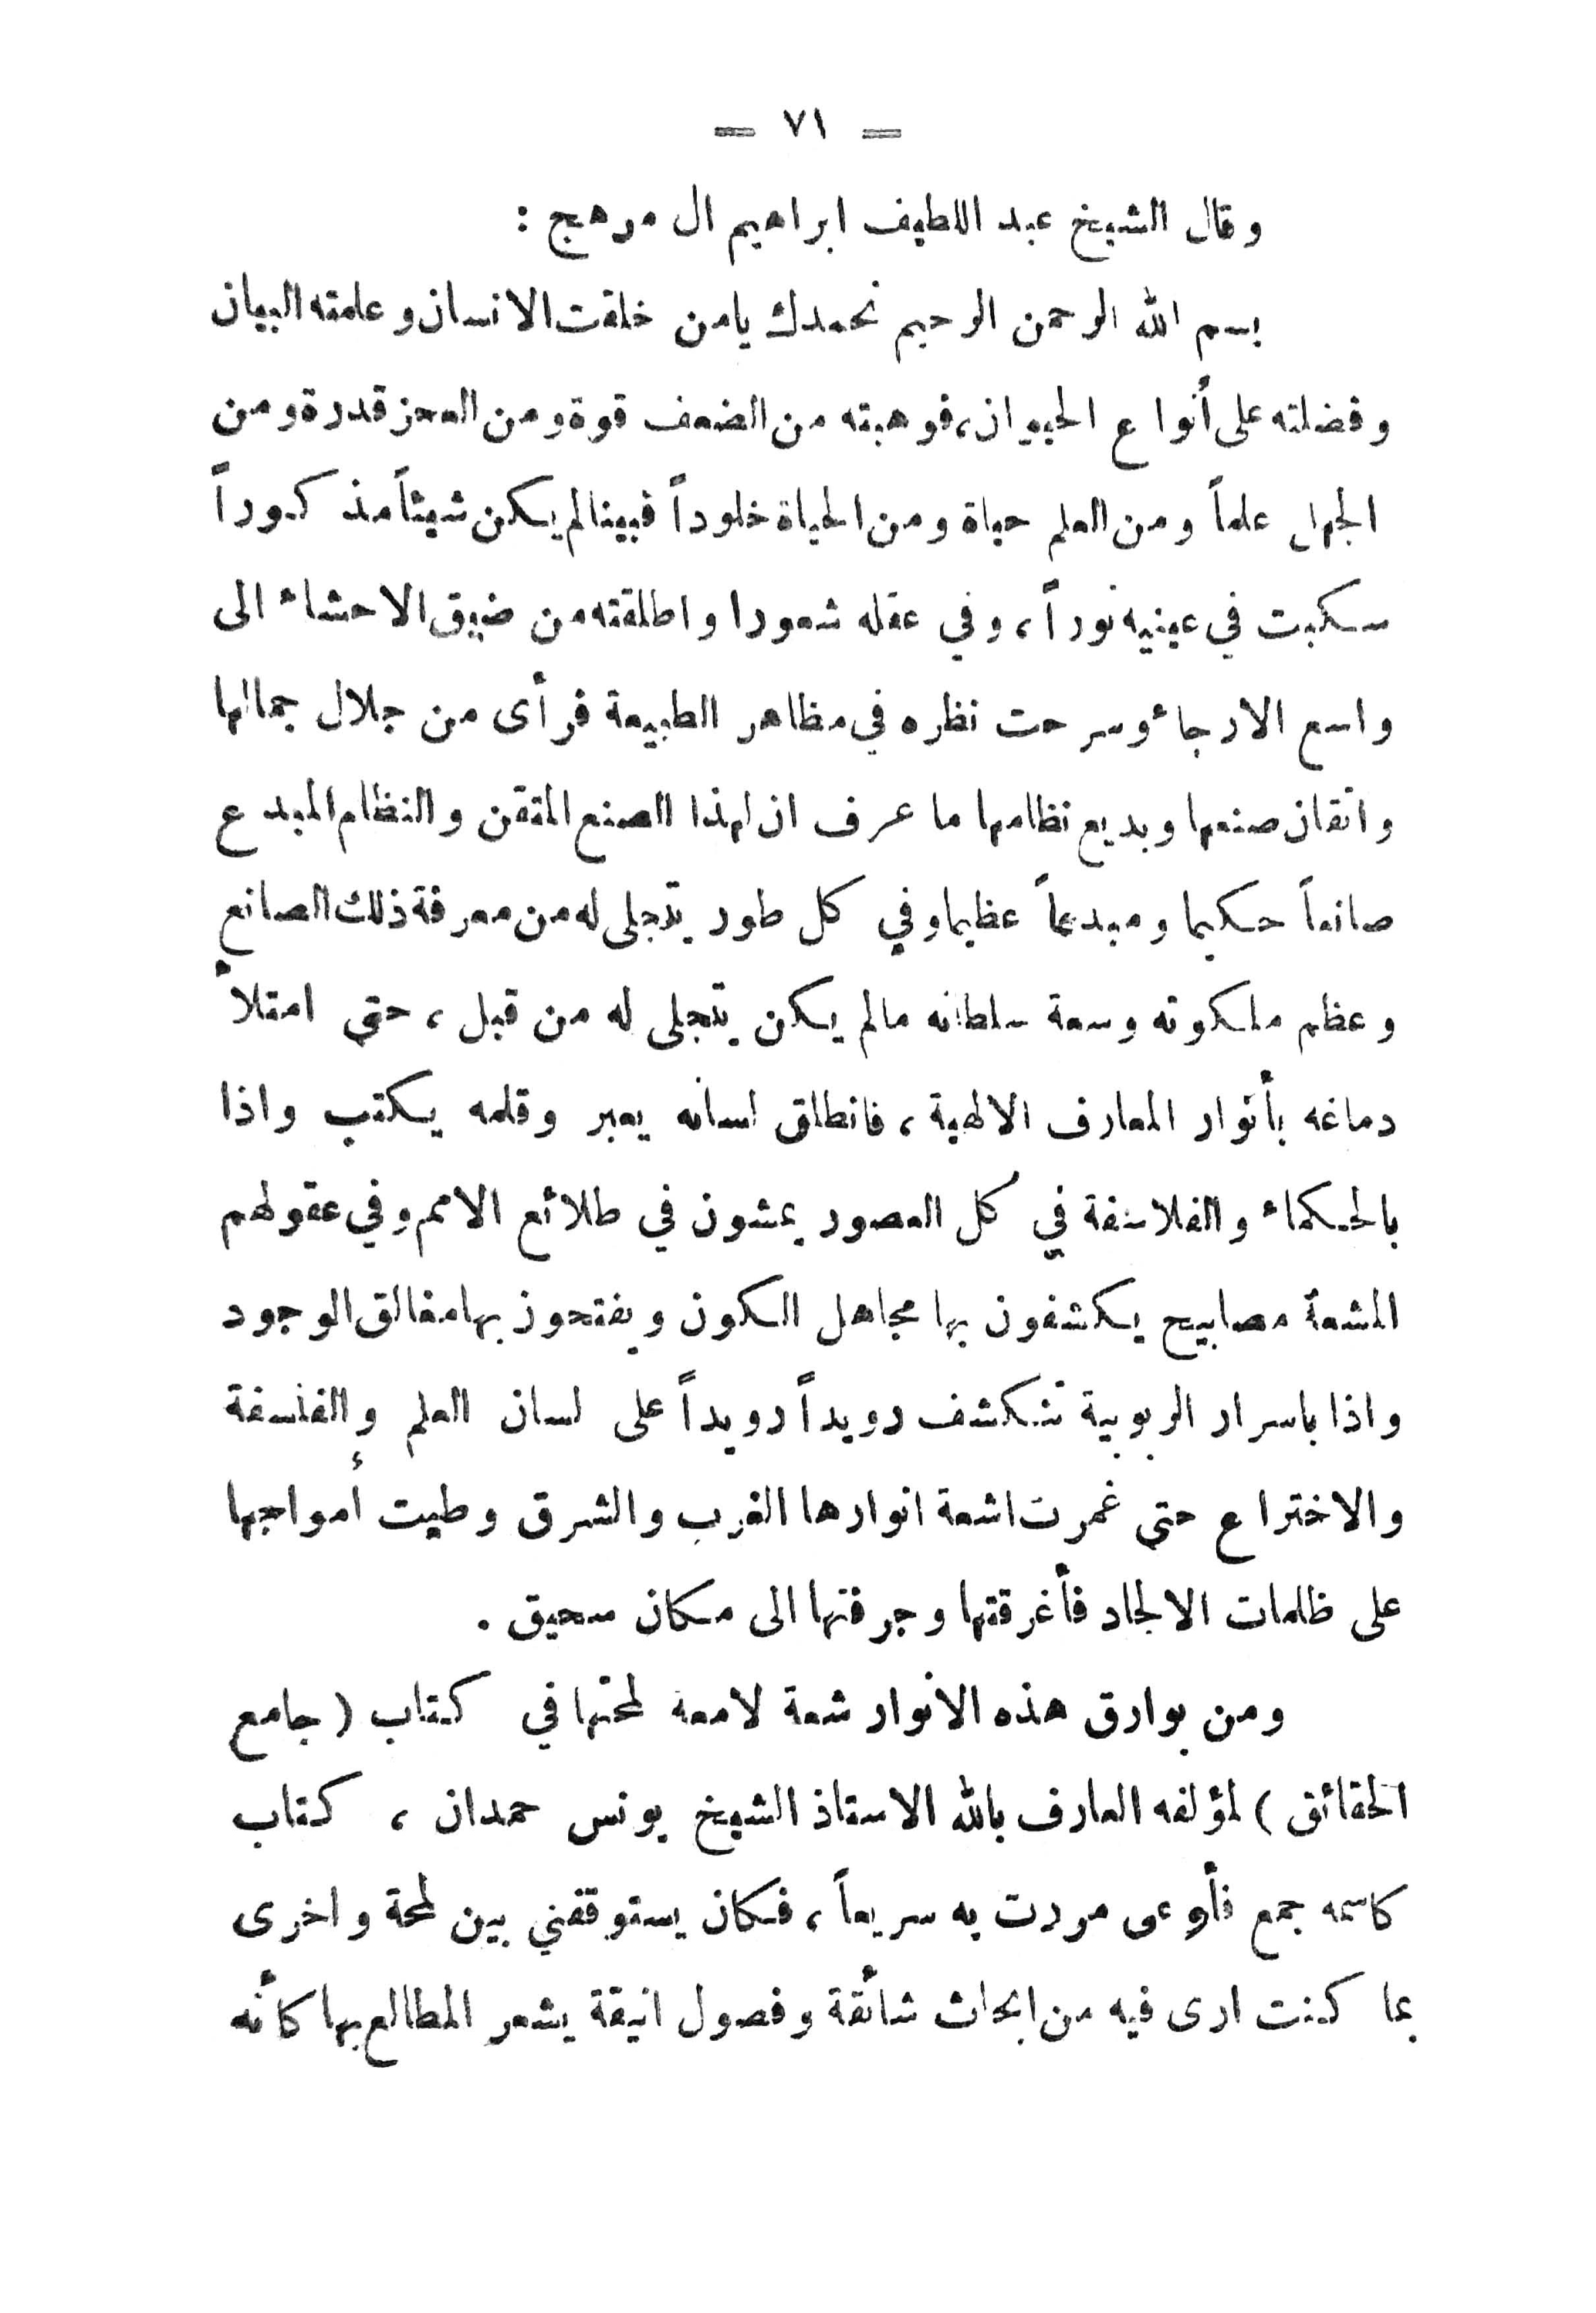 — ٧١ —
وقال الشيخ عبد اللطيف ابراهيم ال مرهج :
بسم الله الرحمن الرحيم نحمدك يامن خلقت الانسان وعلمته البيان
وفضلته على أنواع الحيوان، فوهبته من الضعف قوة ومن العجز قدرة ومن
الجهل علماً ومن العلم حياة ومن الحياة خلوداً فبينا لم يكن شيئاً مذكوراً
سكبت في عينيه نوراً، وفي عقله شعورا واطلقته من ضيق الاحشاء الى
واسع الارجاء وسرحت نظره في مظاهر الطبيعة فرأى من جلال جمالها
واتقان صنعها وبديع نظامها ما عرف ان لهذا الصنع المتقن والنظام المبدع
صانعاً حكيما ومبدعاً عظيما وفي كل طور يتجلى له من معرفة ذلك الصانع
وعظم ملكوته وسعة سلطانه مالم يكن يتجلى له من قبل، حتى امتلأ
دماغه بأنوار المعارف الالهية، فانطلق لسانه يعبر وقلمه يكتب واذا
بالحكماء والفلاسفة في كل العصور يمشون في طلائع الامم وفي عقولهم
المشعة مصابيح يكشفون بها مجاهل الكون ويفتحون بها مغالق الوجود
واذا باسرار الربوبية تتكشف رويداً رويداً على لسان العلم والفلسفة
والاختراع حتى غمرت اشعة انوارها الغرب والشرق وطيت أمواجها
على ظلمات الالحاد فأغرقتها وجرفتها الى مكان سحيق .
ومن بوارق هذه الانوار شعة لامعة لمحتها في كتاب (جامع
الحقائق) لمؤلفه العارف بالله الاستاذ الشيخ يونس حمدان، كتاب
كاسمه جمع فأوعى مررت به سريعاً، فكان يستوقفني بين لمحة واخرى
بما كنت ارى فيه من ابحاث شائقة وفصول انيقة يشعر المطالع بها كأنه